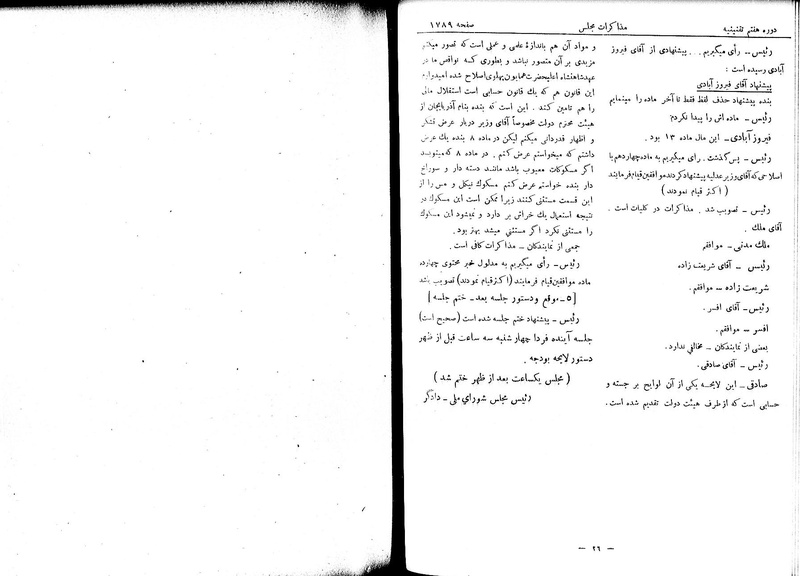 دوره هفتم تقنینیه
مذاکرات مجلس
صفحه ۱۷۸۹
رئیس – رأی میگیریم . . پیشنهادی از آقای فیروز
آبادی رسیده است :
پیشنهاد آقای فیروز آبادی
بنده پیشنهاد حذف لفظ فقط تا آخر ماده را مینمایم
رئیس – ماده اش را پیدا نکردم
فیروز آبادی – این مال ماده ۱۳ بود .
رئیس – پس گذشت . رأی میگیریم به ماده چهاردهم با
اصلاحی که آقای وزیر عدلیه پیشنهاد کردند موافقین قیام فرمایند
( اکثر قیام نمودند )
رئیس – تصویب شد . مذاکرات در کلیات است .
آقای ملک .
ملک مدنی – موافقم
رئیس – آقای شریعت زاده
شریعت زاده – موافقم .
رئیس – آقای افسر .
افسر – موافقم .
بعضی از نمایندگان – مخالفی ندارد .
رئیس – آقای صادقی .
صادقی – این لایحه یکی از آن لوایح بر جسته و
حسابی است که از طرف هیئت دولت تقدیم شده است .
و مواد آن هم باندازهٔ علمی و عملی است که تصور میکنم
مزیدی بر آن متصور نباشد و بطوری که نواقص ما در
عهد شاهنشاه اعلیحضرت همایون پهلوی اصلاح شده امیدوارم
این قانون هم که یك قانون حسابی است استقلال مالی
را هم تامین کنند . این است که بنده بنام آذربایجان از
هیئت محترم دولت مخصوصاً آقای وزیر دربار عرض تشکر
و اظهار قدردانی میکنم لیکن در ماده ۸ بنده یك عرض
داشتم که میخواستم عرض کنم . در ماده ۸ که مینویسد
اگر مسکوکات معیوب باشد مانند دسته دار و سوراخ
دار بنده خواستم عرض کنم مسکوك نیکل و مس را از
این قسمت مستثنی کنند زیرا ممکن است این مسکوك در
نتیجه استعمال یك خراش بر دارد و نمیشود این مسکوك
را مستثنی نکرد اگر مستثنی میشد بهتر بود .
جمعی از نمایندگان – مذاکرات کافی است .
رئیس – رأی میگیریم به مدلول خبر محتوی چهارده
ماده موافقین قیام فرمایند (اکثر قیام نمودند) تصویب شد
[ ۵ – موقع و دستور جلسه بعد – ختم جلسه ]
رئیس – پیشنهاد ختم جلسه شده است (صحیح است)
جلسه آینده فردا چهار شنبه سه ساعت قبل از ظهر
دستور لایحه بودجه .
( مجلس یکساعت بعد از ظهر ختم شد )
رئیس مجلس شورای ملی – دادگر
— ۲۶ —